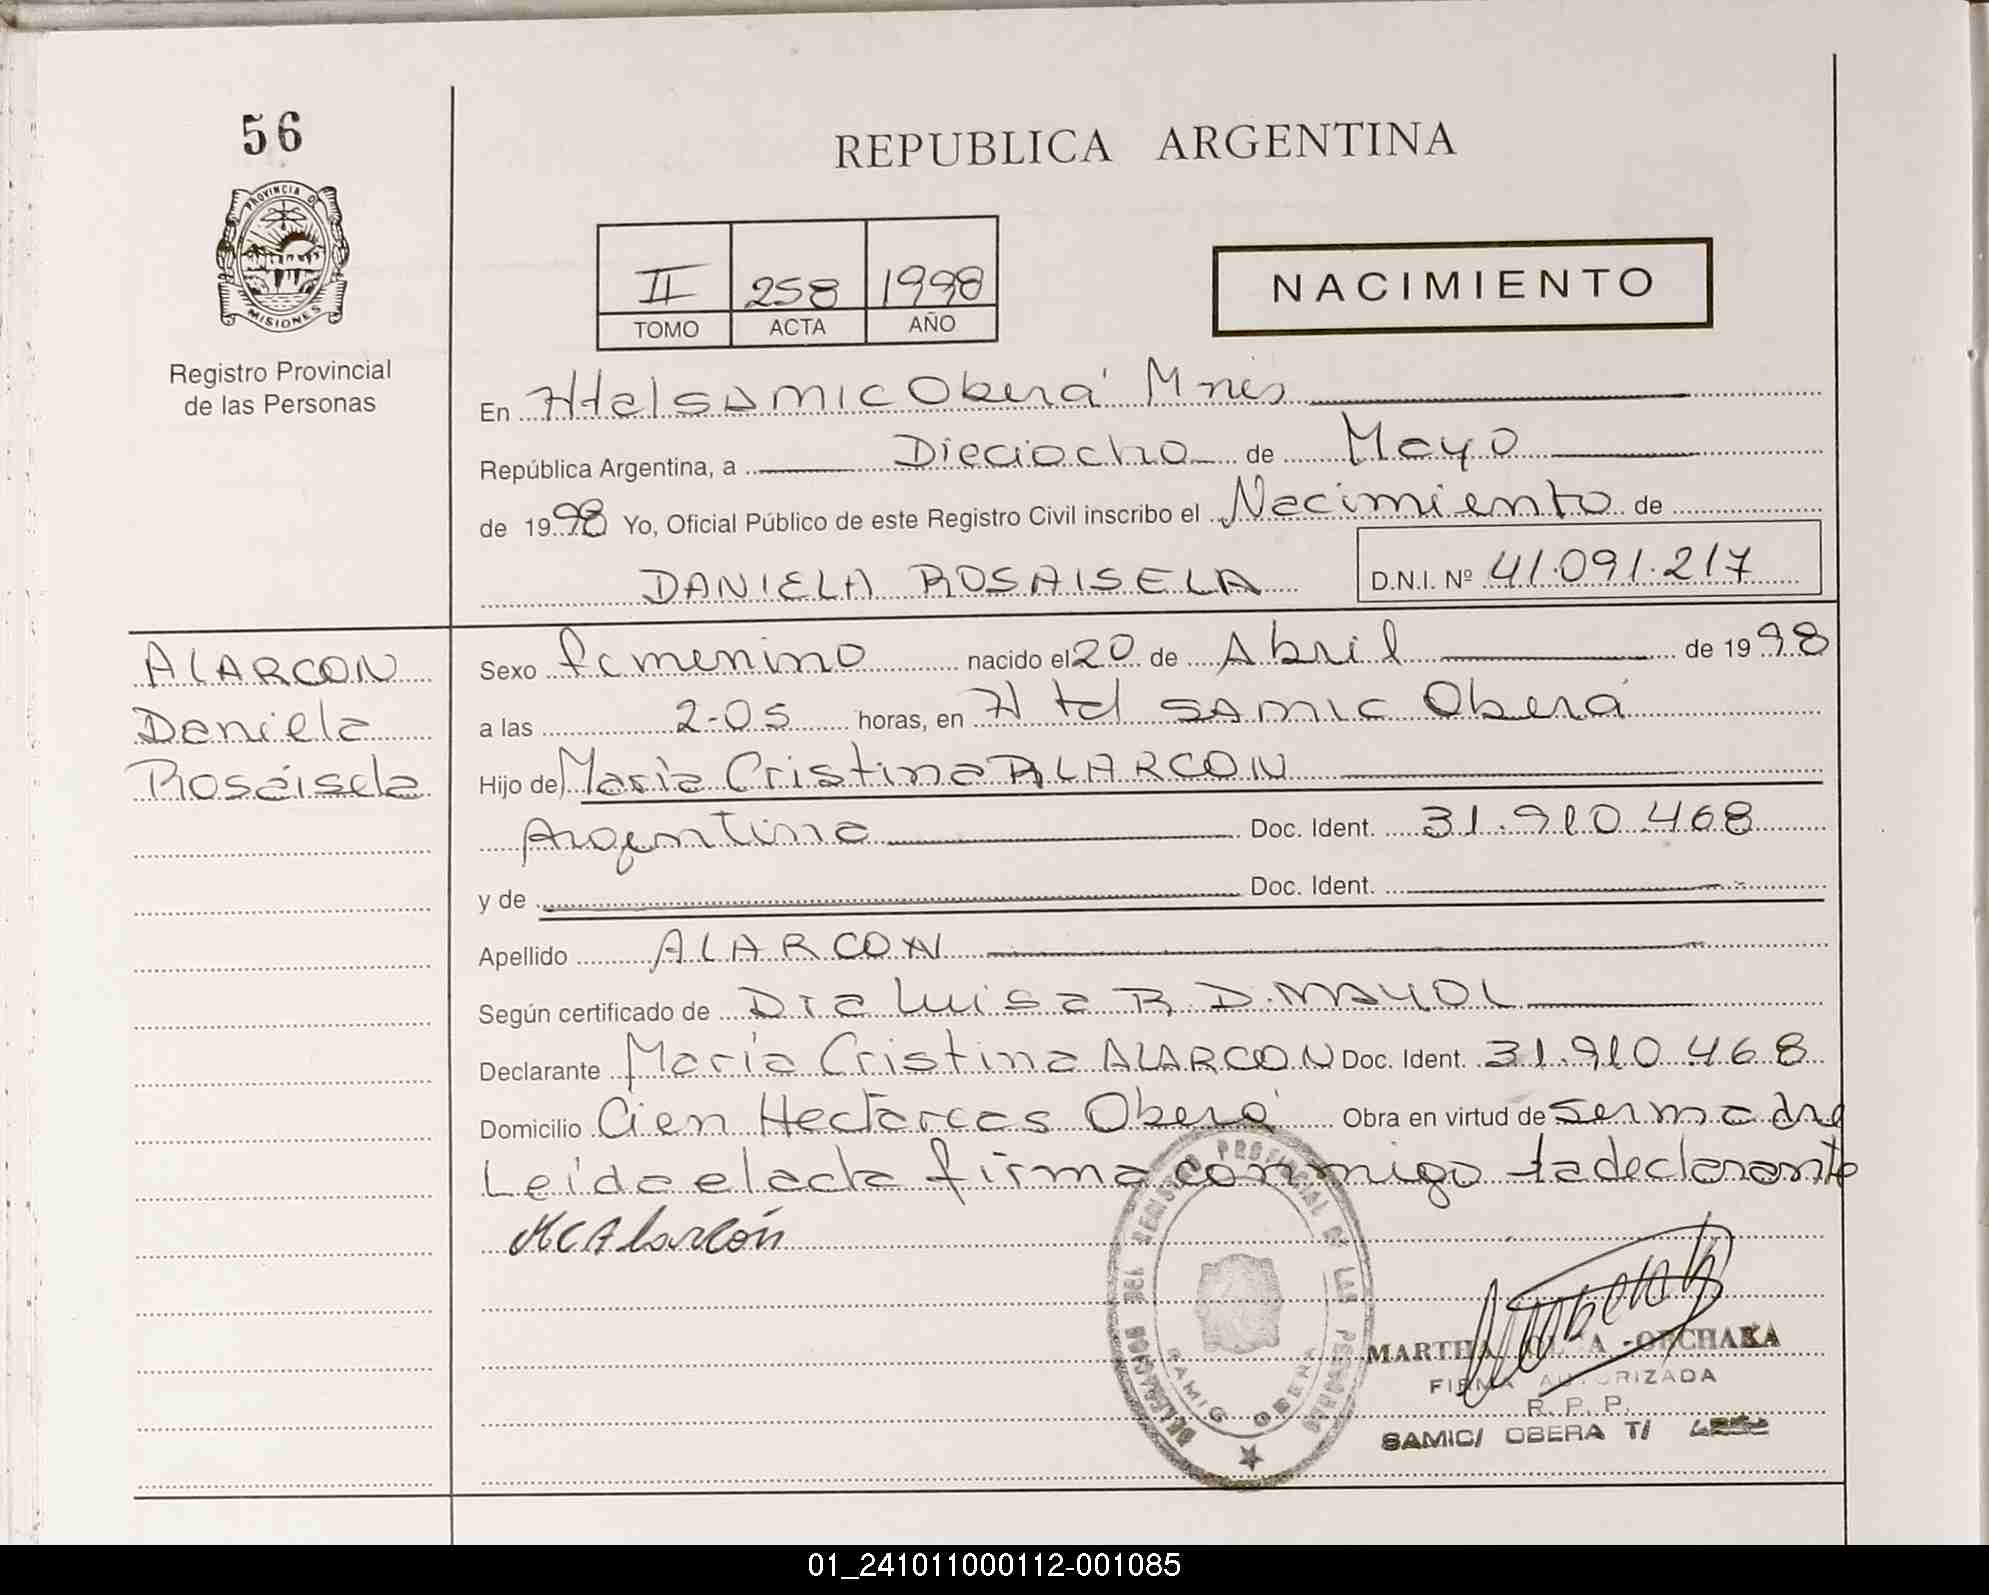 56
REPUBLICA ARGENTINA
PROVINCIA DE
MISIONES
Registro Provincial
de las Personas
II 258 1998
TOMO ACTA AÑO
NACIMIENTO
En Htal SAMIC Oberá Mnes
República Argentina, a Dieciocho de Mayo
de 1998 Yo, Oficial Público de este Registro Civil inscribo el Nacimiento de
DANIELA ROSAISELA D.N.I. Nº 41.091.217
ALARCON
Daniela
Rosaisela
Sexo femenino nacido el 20 de Abril de 1998
a las 2-05 horas, en Htal SAMIC Oberá
Hijo de María Cristina ALARCON
Argentina Doc. Ident. 31.910.468
y de Doc. Ident.
Apellido ALARCON
Según certificado de Dra Luisa R. D. MAYOL
Declarante María Cristina ALARCON Doc. Ident. 31.910.468
Domicilio Cien Hectareas Oberá Obra en virtud de ser madre
Leída el acta firma conmigo la declarante
MCAlarcón
DEL REGISTRO PROVINCIAL DE LAS PERSONAS
SAMIC OBERA
MARTHA
FIRMA AUTORIZADA
R. P. P.
SAMIC/ OBERA T/
01_241011000112-001085